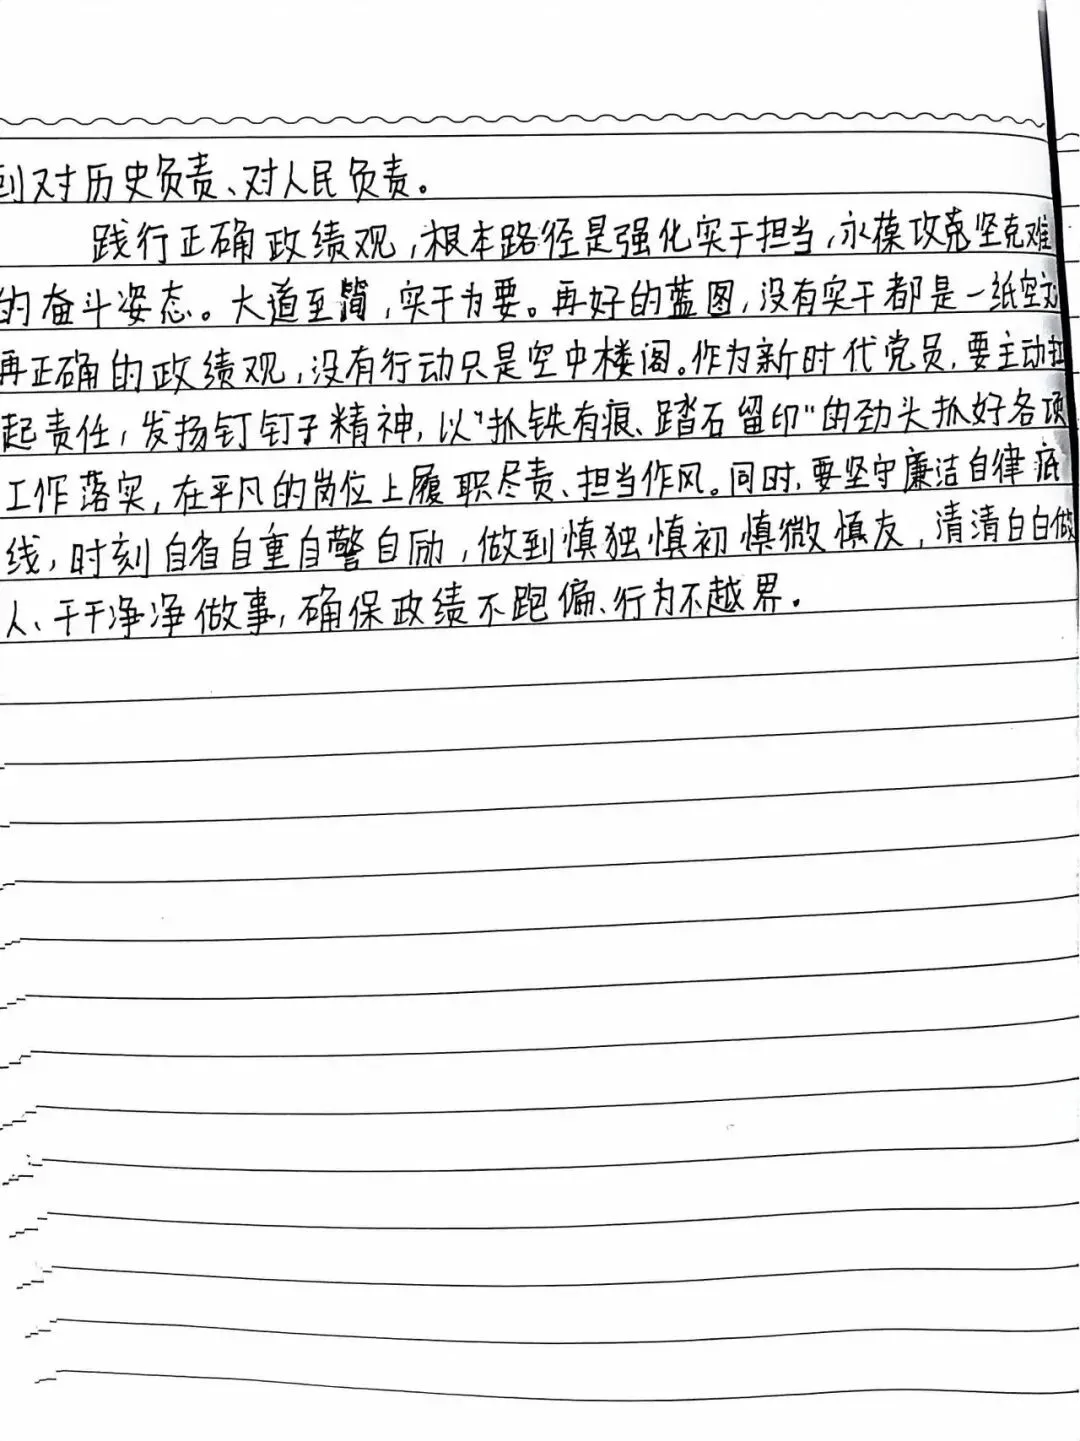 到对历史负责、对人民负责。
践行正确政绩观，根本路径是强化实干担当，永葆攻克坚克难
的奋斗姿态。大道至简，实干为要。再好的蓝图，没有实干都是一纸空文
再正确的政绩观，没有行动只是空中楼阁。作为新时代党员，要主动扛
起责任，发扬钉钉子精神，以“抓铁有痕、踏石留印”的劲头抓好各项
工作落实，在平凡的岗位上履职尽责、担当作风。同时，要坚守廉洁自律底
线，时刻自省自重自警自励，做到慎独慎初慎微慎友，清清白白做
人、干干净净做事，确保政绩不跑偏、行为不越界.